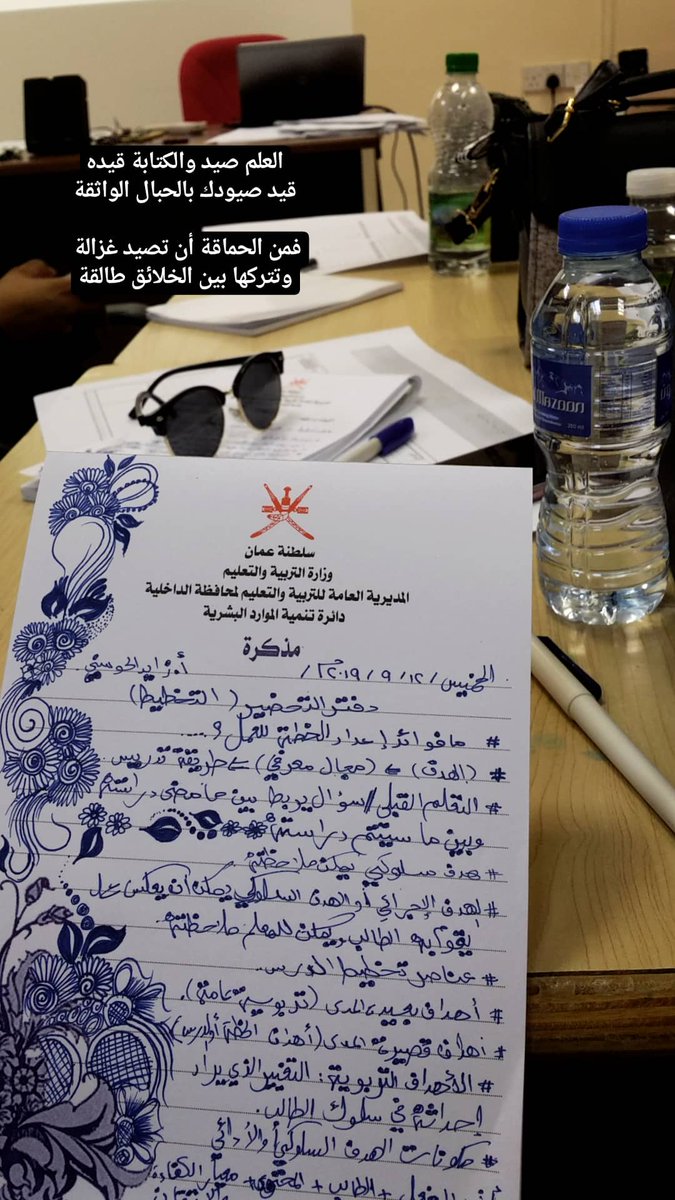 العلم صيد والكتابة قيده
قيد صيودك بالحبال الواثقة
فمن الحماقة أن تصيد غزالة
وتتركها بين الخلائق طالقة
Mazoon
250 ml
سلطنة عمان
وزارة التربية والتعليم
المديرية العامة للتربية والتعليم لمحافظة الداخلية
دائرة تنمية الموارد البشرية
مذكرة
الخميس / ١٢ / ٩ / ٢٠١٩م / أ. زايد
دفتر التحضير (التخطيط)
# ما فوائد إعداد الخطة للعمل؟ ....
# (الهدف) ← (مجال معرفي) ← طريقة تدريس
# التعلم القبلي / سؤال يربط بين ما مضى دراسته
وبين ما سيتم دراسته
# هدف سلوكي يمكن ملاحظته
# لهدف الإجرائي أو الهدف السلوكي يمكن أن يعكس عمل
يقوم به الطالب ويمكن للمعلم ملاحظته.
# عناصر تخطيط الدرس.
# أهداف بعيدة المدى (تربوية عامة).
# أهداف قصيرة المدى (أهداف الخطة أو الدرس)
# الأهداف التربوية: التغيير الذي يراد
إحداثه في سلوك الطالب.
# مكونات الهدف السلوكي أو الأدائي
الفعل + الطالب + المحتوى + معيار الكفاءة